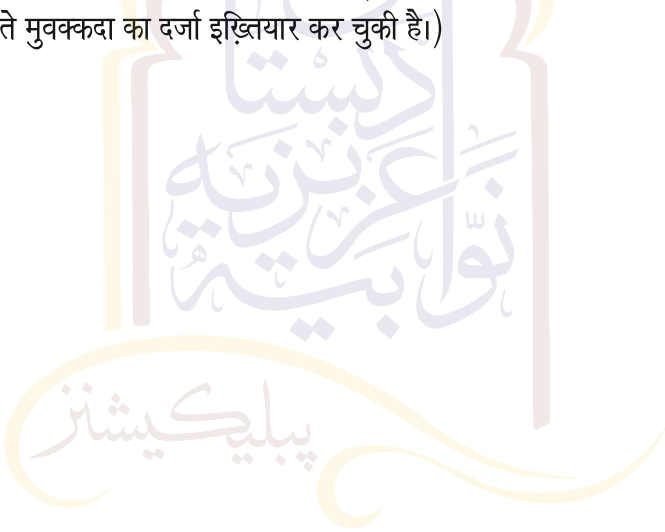 ते मुवक्कदा का दर्जा इख़्तियार कर चुकी है।)
دبستان
نوّابیہ عزیزیہ
پبلیکیشنز